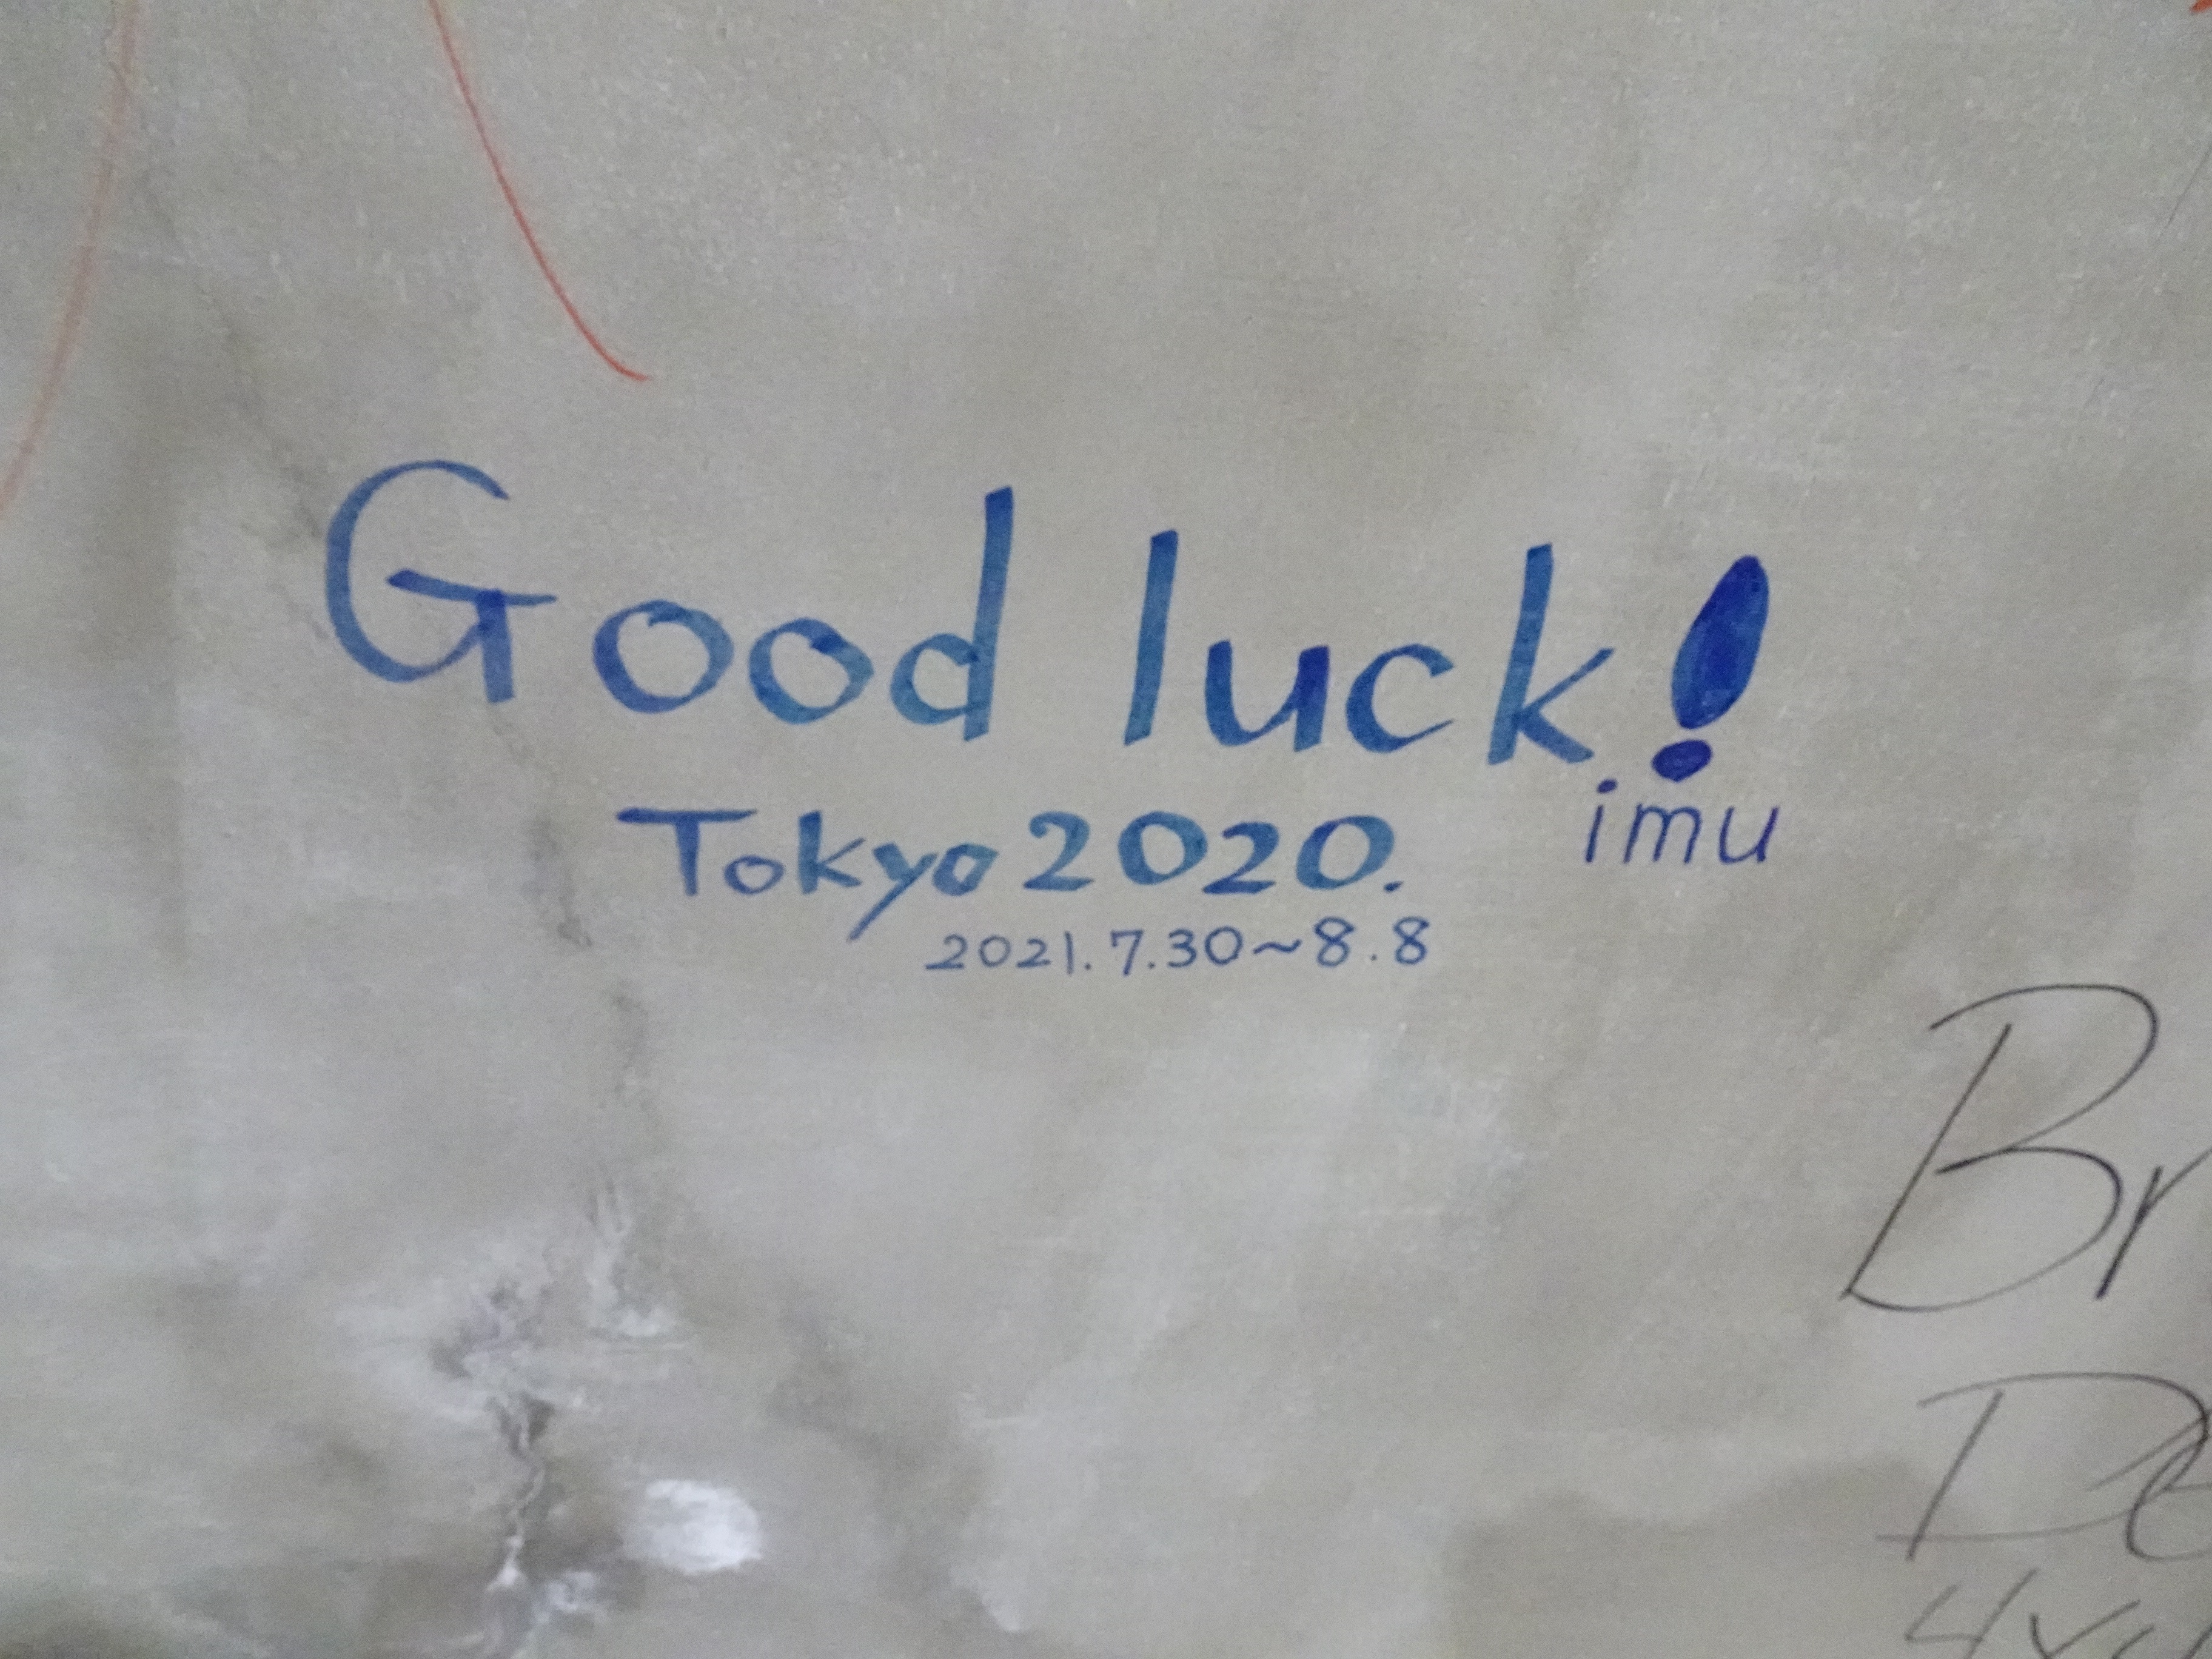 Good luck!
imu
Tokyo 2020.
2021.7.30~8.8